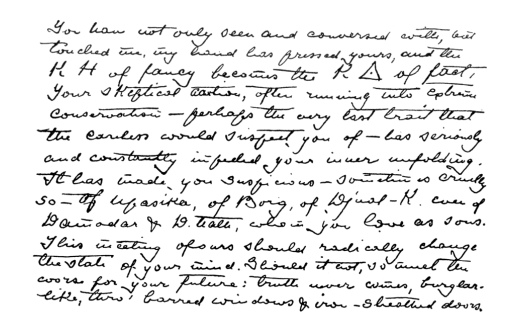 You have not only seen and conversed with, but
touched me, my hand has pressed yours, and the
K H of fancy becomes the K. △ of fact,
Your skeptical action, often running into extreme
conservatism – perhaps the very last trait that
the careless would suspect you of – has seriously
and constantly impeded your inner unfolding.
It has made you suspicious – sometimes cruelly
so – of Upasika, of Borg, of Djual-K. even of
Damodar & D. Nath, whom you love as sons.
This meeting of ours should radically change
the state of your mind. Should it not, so much the
worse for your future: truth never comes, burglar-
like, thro' barred windows & iron-sheathed doors.